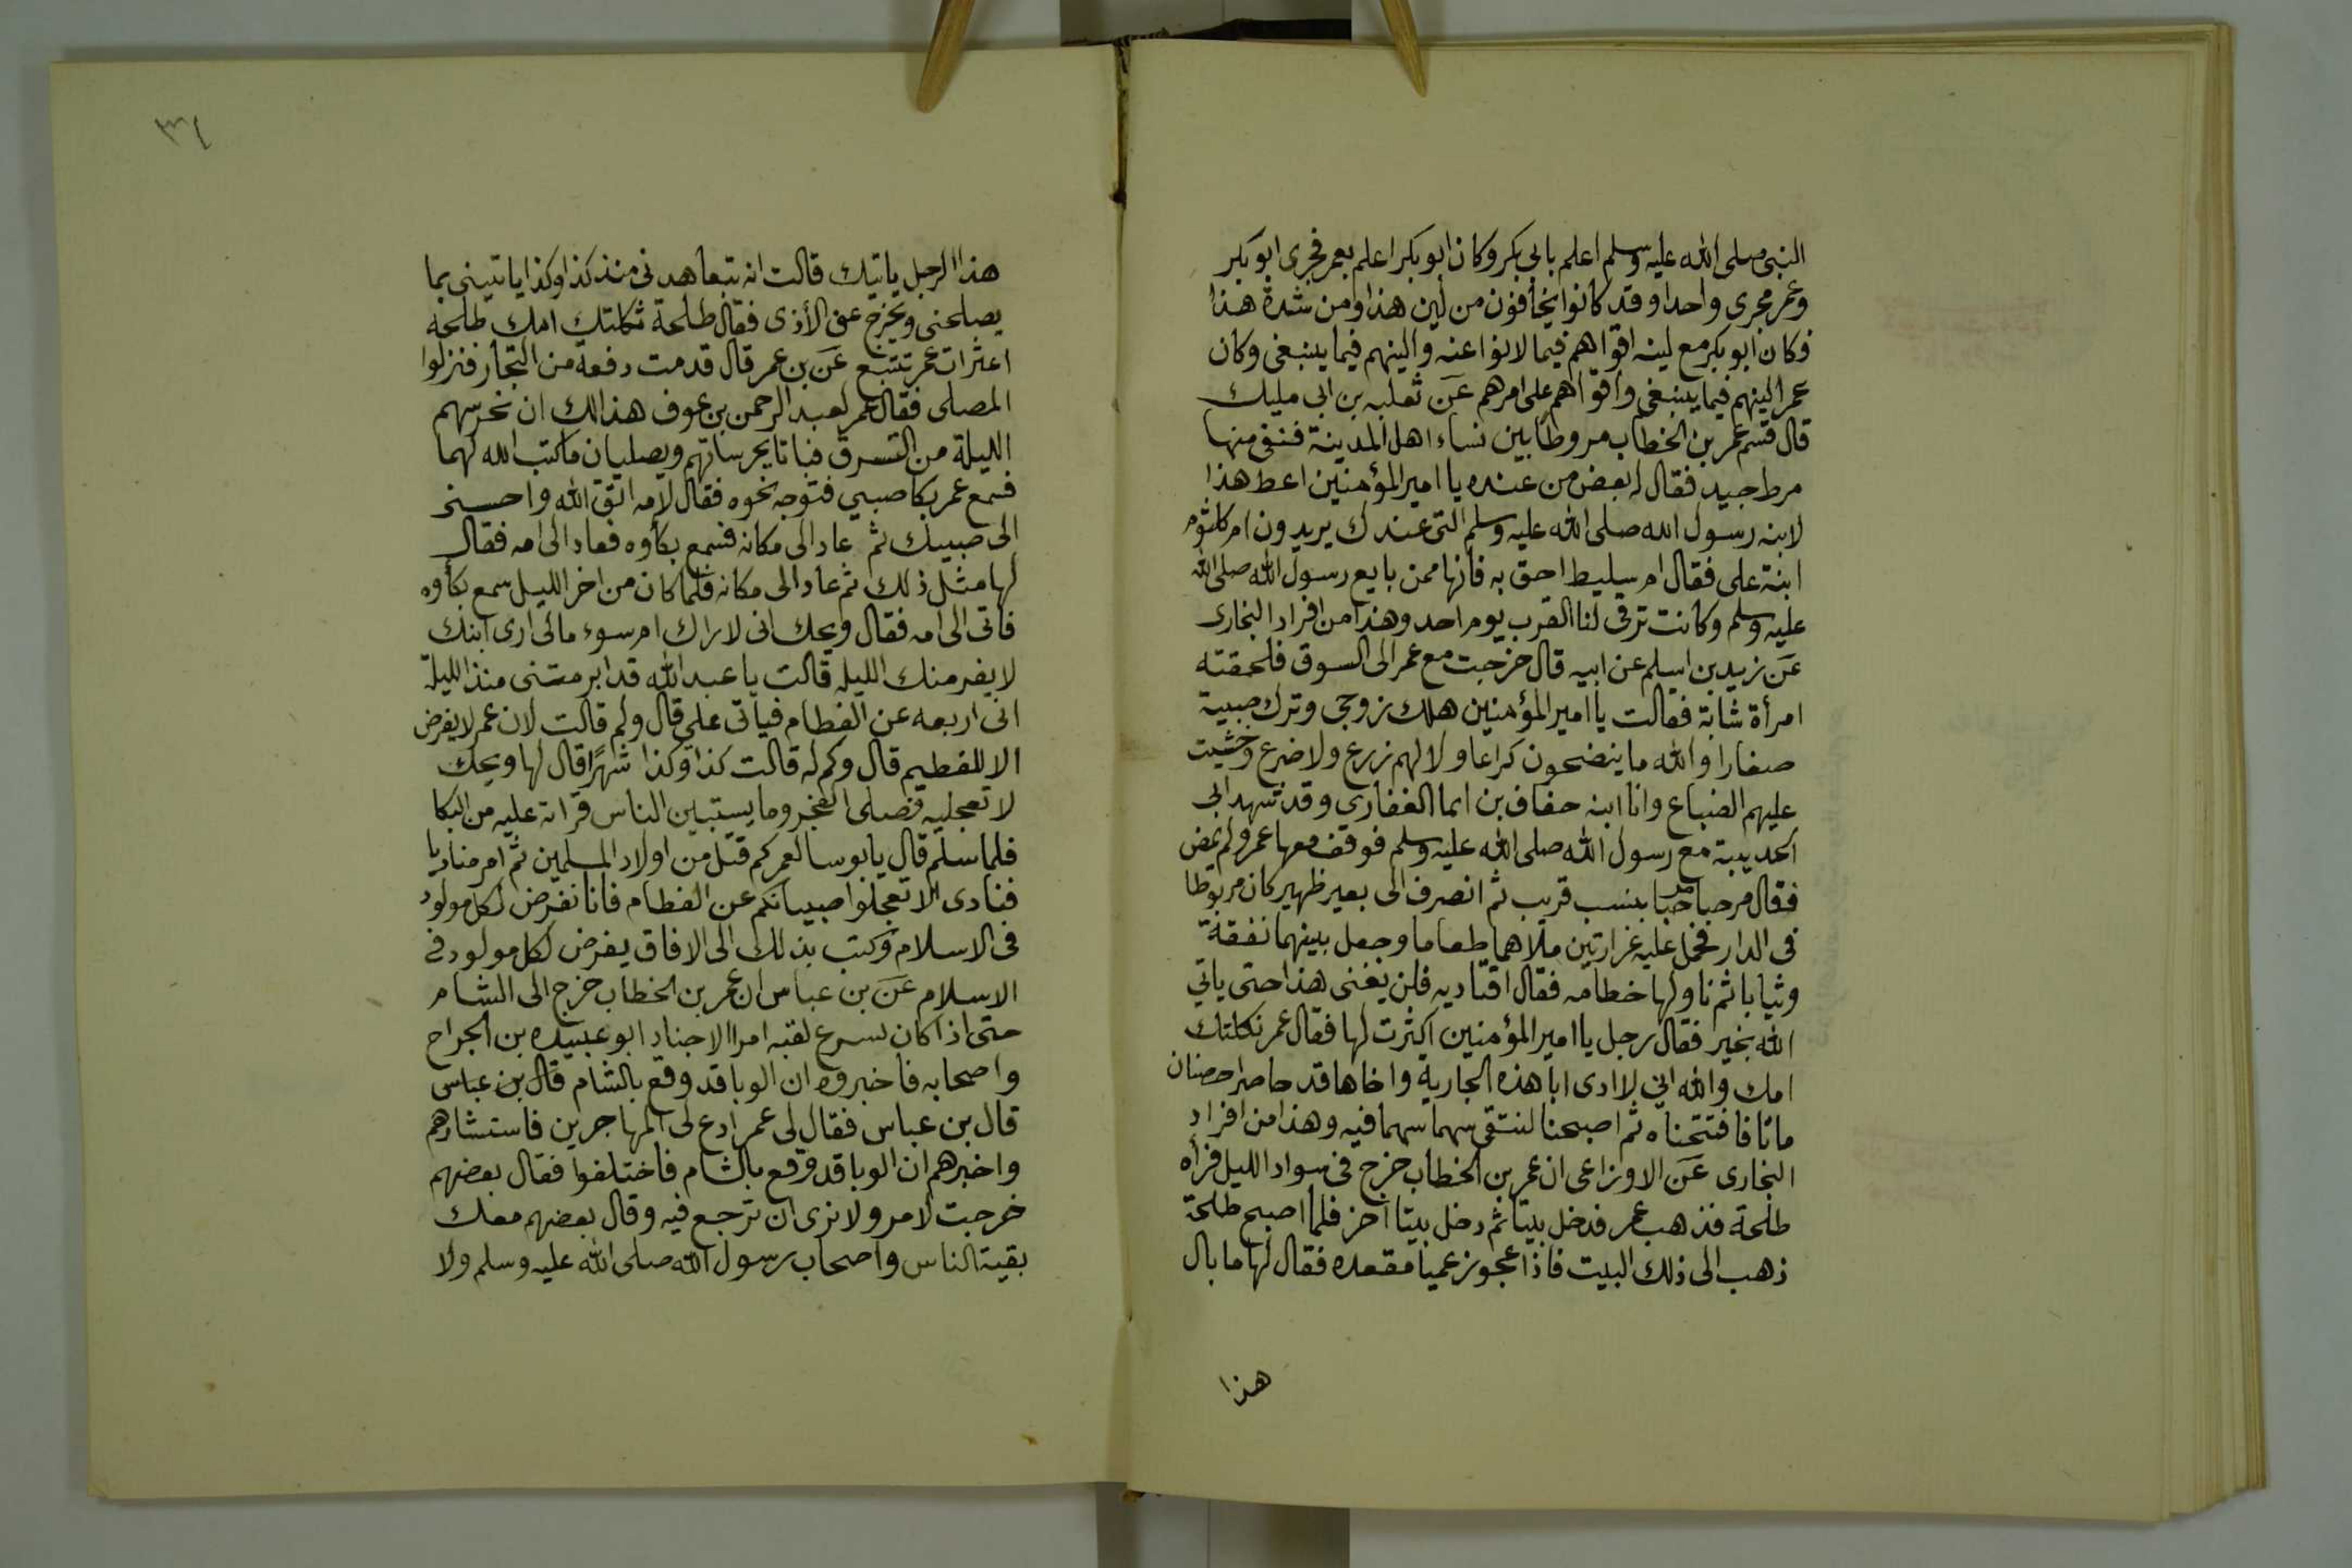 النبي صلى الله عليه وسلم اعلم بابي بكر وكان ابو بكر اعلم بعمر فجرى ابو بكر
وعمر مجرى واحدا وقد كانوا يخافون من لين هذا ومن شدة هذا
فكان ابو بكر مع لينه اقواهم فيما لانوا عنه والينهم فيما ينبغي وكان
عمر الينهم فيما ينبغي واقواهم على امرهم عن ثعلبه بن ابي مليك
قال قسم عمر بن الخطاب مروطا بين نساء اهل المدينة فنفى منها
مرط جييد فقال له بعض من عنده يا امير المؤمنين اعط هذا
لابنه رسول الله صلى الله عليه وسلم التي عندك يريدون ام كلثوم
ابنة على فقال ام سليط احق به فانها ممن بايع رسول الله صلى الله
عليه وسلم وكانت ترقى لنا القرب يوم احد وهذا من افراد البخارى
عن زيد بن اسلم عن ابيه قال خرجت مع عمر الى السوق فلحقته
امرأة شابة فقالت يا امير المؤمنين هلك زوجى وترك صبية
صغارا والله ما ينضحون كراعا ولا لهم زرع ولا ضرع وخشيت
عليهم الضباع وانا ابنه خفاف بن ايما الغفاري وقد شهد ابي
الحديبية مع رسول الله صلى الله عليه وسلم فوقف معها عمر ولم يمض
فقال مرحبا مرحبا بنسب قريب ثم انصرف الى بعير ظهير كان مربوطا
فى الدار فحمل عليه غرارتين ملاهما طعاما وجعل بينهما نفقة
وثيابا ثم ناولها خطامه فقال اقتاديه فلن يفنى هذا حتى ياتي
الله بخير فقال رجل يا امير المؤمنين اكثرت لها فقال عمر ثكلتك
امك والله اني لا ارى ابا هذه الجارية واخاها قد حاصرا حصنان
مانا فافتتحناه ثم اصبحنا لنتقى سهما سهما فيه وهذا من افراد
البخارى عن الاوزاعى ان عمر بن الخطاب خرج فى سواد الليل فرأه
طلحة فذهب عمر فدخل بيتا ثم دخل بيتا آخر فلما اصبح طلحة
ذهب الى ذلك البيت فاذا عجوز عميا مقعده فقال لها ما بال
هذا
٣٤
هذا الرجل ياتيك قالت انه يتعاهدنى منذ كذا وكذا ياتيني بما
يصلحنى ويخرج عنى الأذى فقال طلحة ثكلتك امك طلحه
اعثرات عمر تتبع عن بن عمر قال قدمت رفعة من التجار فنزلوا
المصلى فقال عمر لعبد الرحمن بن عوف هذالك ان نحرسهم
الليلة من السرق فباتا يحرساتهم ويصليان ما كتب الله لهما
فسمع عمر بكا صبي فتوجه نحوه فقال لامه اتق الله واحسنى
الى صبيك ثم عاد الى مكانه فسمع بكاوه فعاد الى امه فقال
لها مثل ذلك ثم عاد الى مكانه فلما كان من اخر الليل سمع بكاوه
فاتى الى امه فقال ويحك انى لاراك ام سوء مالى ارى ابنك
لا يفر منك الليله قالت يا عبد الله قد ابرمتنى منذ الليلة
انى اربعه عن الفطام فيأتى علي قال ولم قالت لان عمر لا يفرض
الا للفطيم قال وكم له قالت كذا وكذا شهرًا قال لها ويحك
لا تعجليه فصلى الفجر وما يستبين الناس قراته عليه من البكا
فلما سلم قال يا بوسا لعمر كم قتل من اولاد المسلمين ثم امر مناديا
فنادى الا تعجلوا صبيانكم عن الفطام فانا نفرض لكل مولود
فى الاسلام وكتب بذلك الى الافاق يفرض لكل مولود فى
الاسلام عن بن عباس ان عمر بن الخطاب خرج الى الشام
حتى اذا كان بسرع لقيه امرا الاجناد ابو عبيده بن الجراح
واصحابه فاخبروه ان الوبا قد وقع بالشام قال بن عباس
قال بن عباس فقال لى عمر ادع لى المهاجرين فاستشارهم
واخبرهم ان الوبا قد وقع بالشام فاختلفوا فقال بعضهم
خرجت لامر ولا نرى ان ترجع فيه وقال بعضهم معك
بقية الناس واصحاب رسول الله صلى الله عليه وسلم ولا